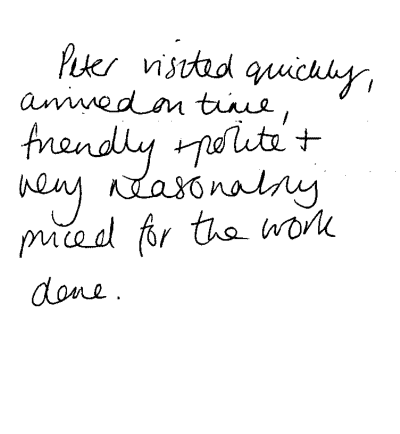 Peter visited quickly,
arrived on time,
friendly + polite +
very reasonably
priced for the work
done.